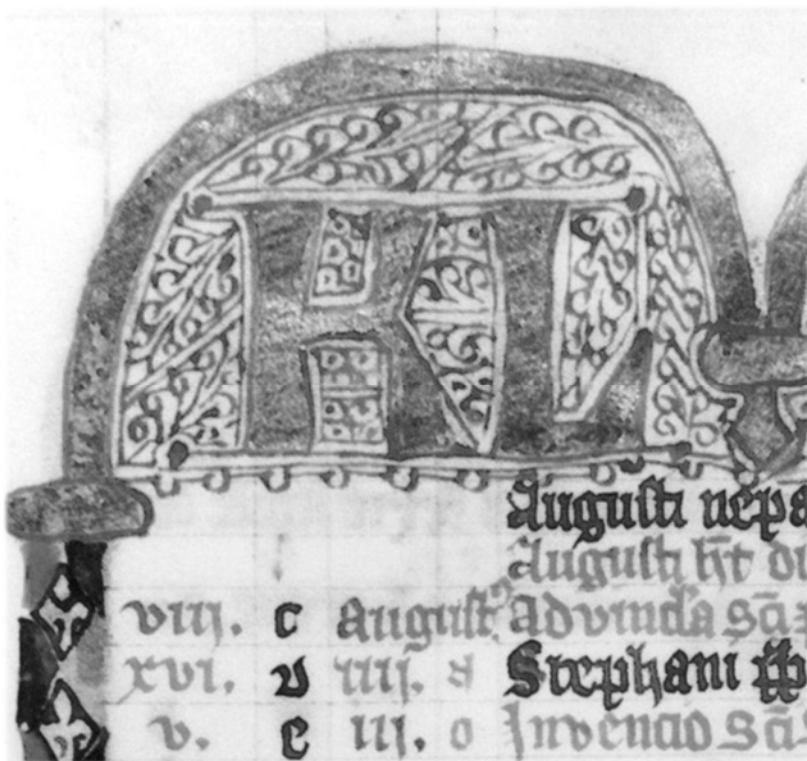 KL
Augusti nepa
Augusti ht di
viii. c August Ad vincla sci
xvi. d iiii. Stephani pp
v. e iii. o Invencio sci